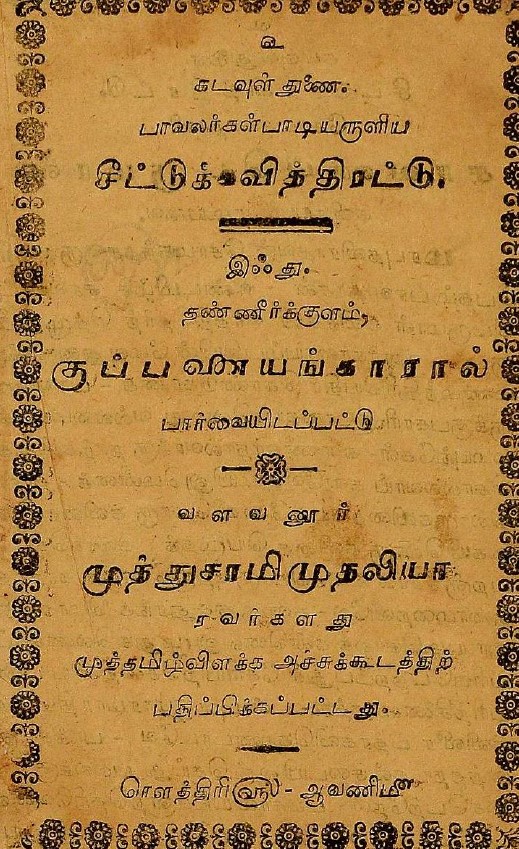 உ
கடவுள் துணை.
பாவலர்கள்பாடியருளிய
சீட்டுக்கவித்திரட்டு.
இஃது.
தண்ணீர்க்குளம்,
குப்பணையங்காரால்
பார்வையிடப்பட்டு
வளவனூர்
முத்துசாமிமுதலியா
ரவர்களது
முத்தமிழ்விளக்க அச்சுக்கூடத்திற்
பதிப்பிக்கப்பட்டது.
ரௌத்திரி௵ - ஆவணி௴